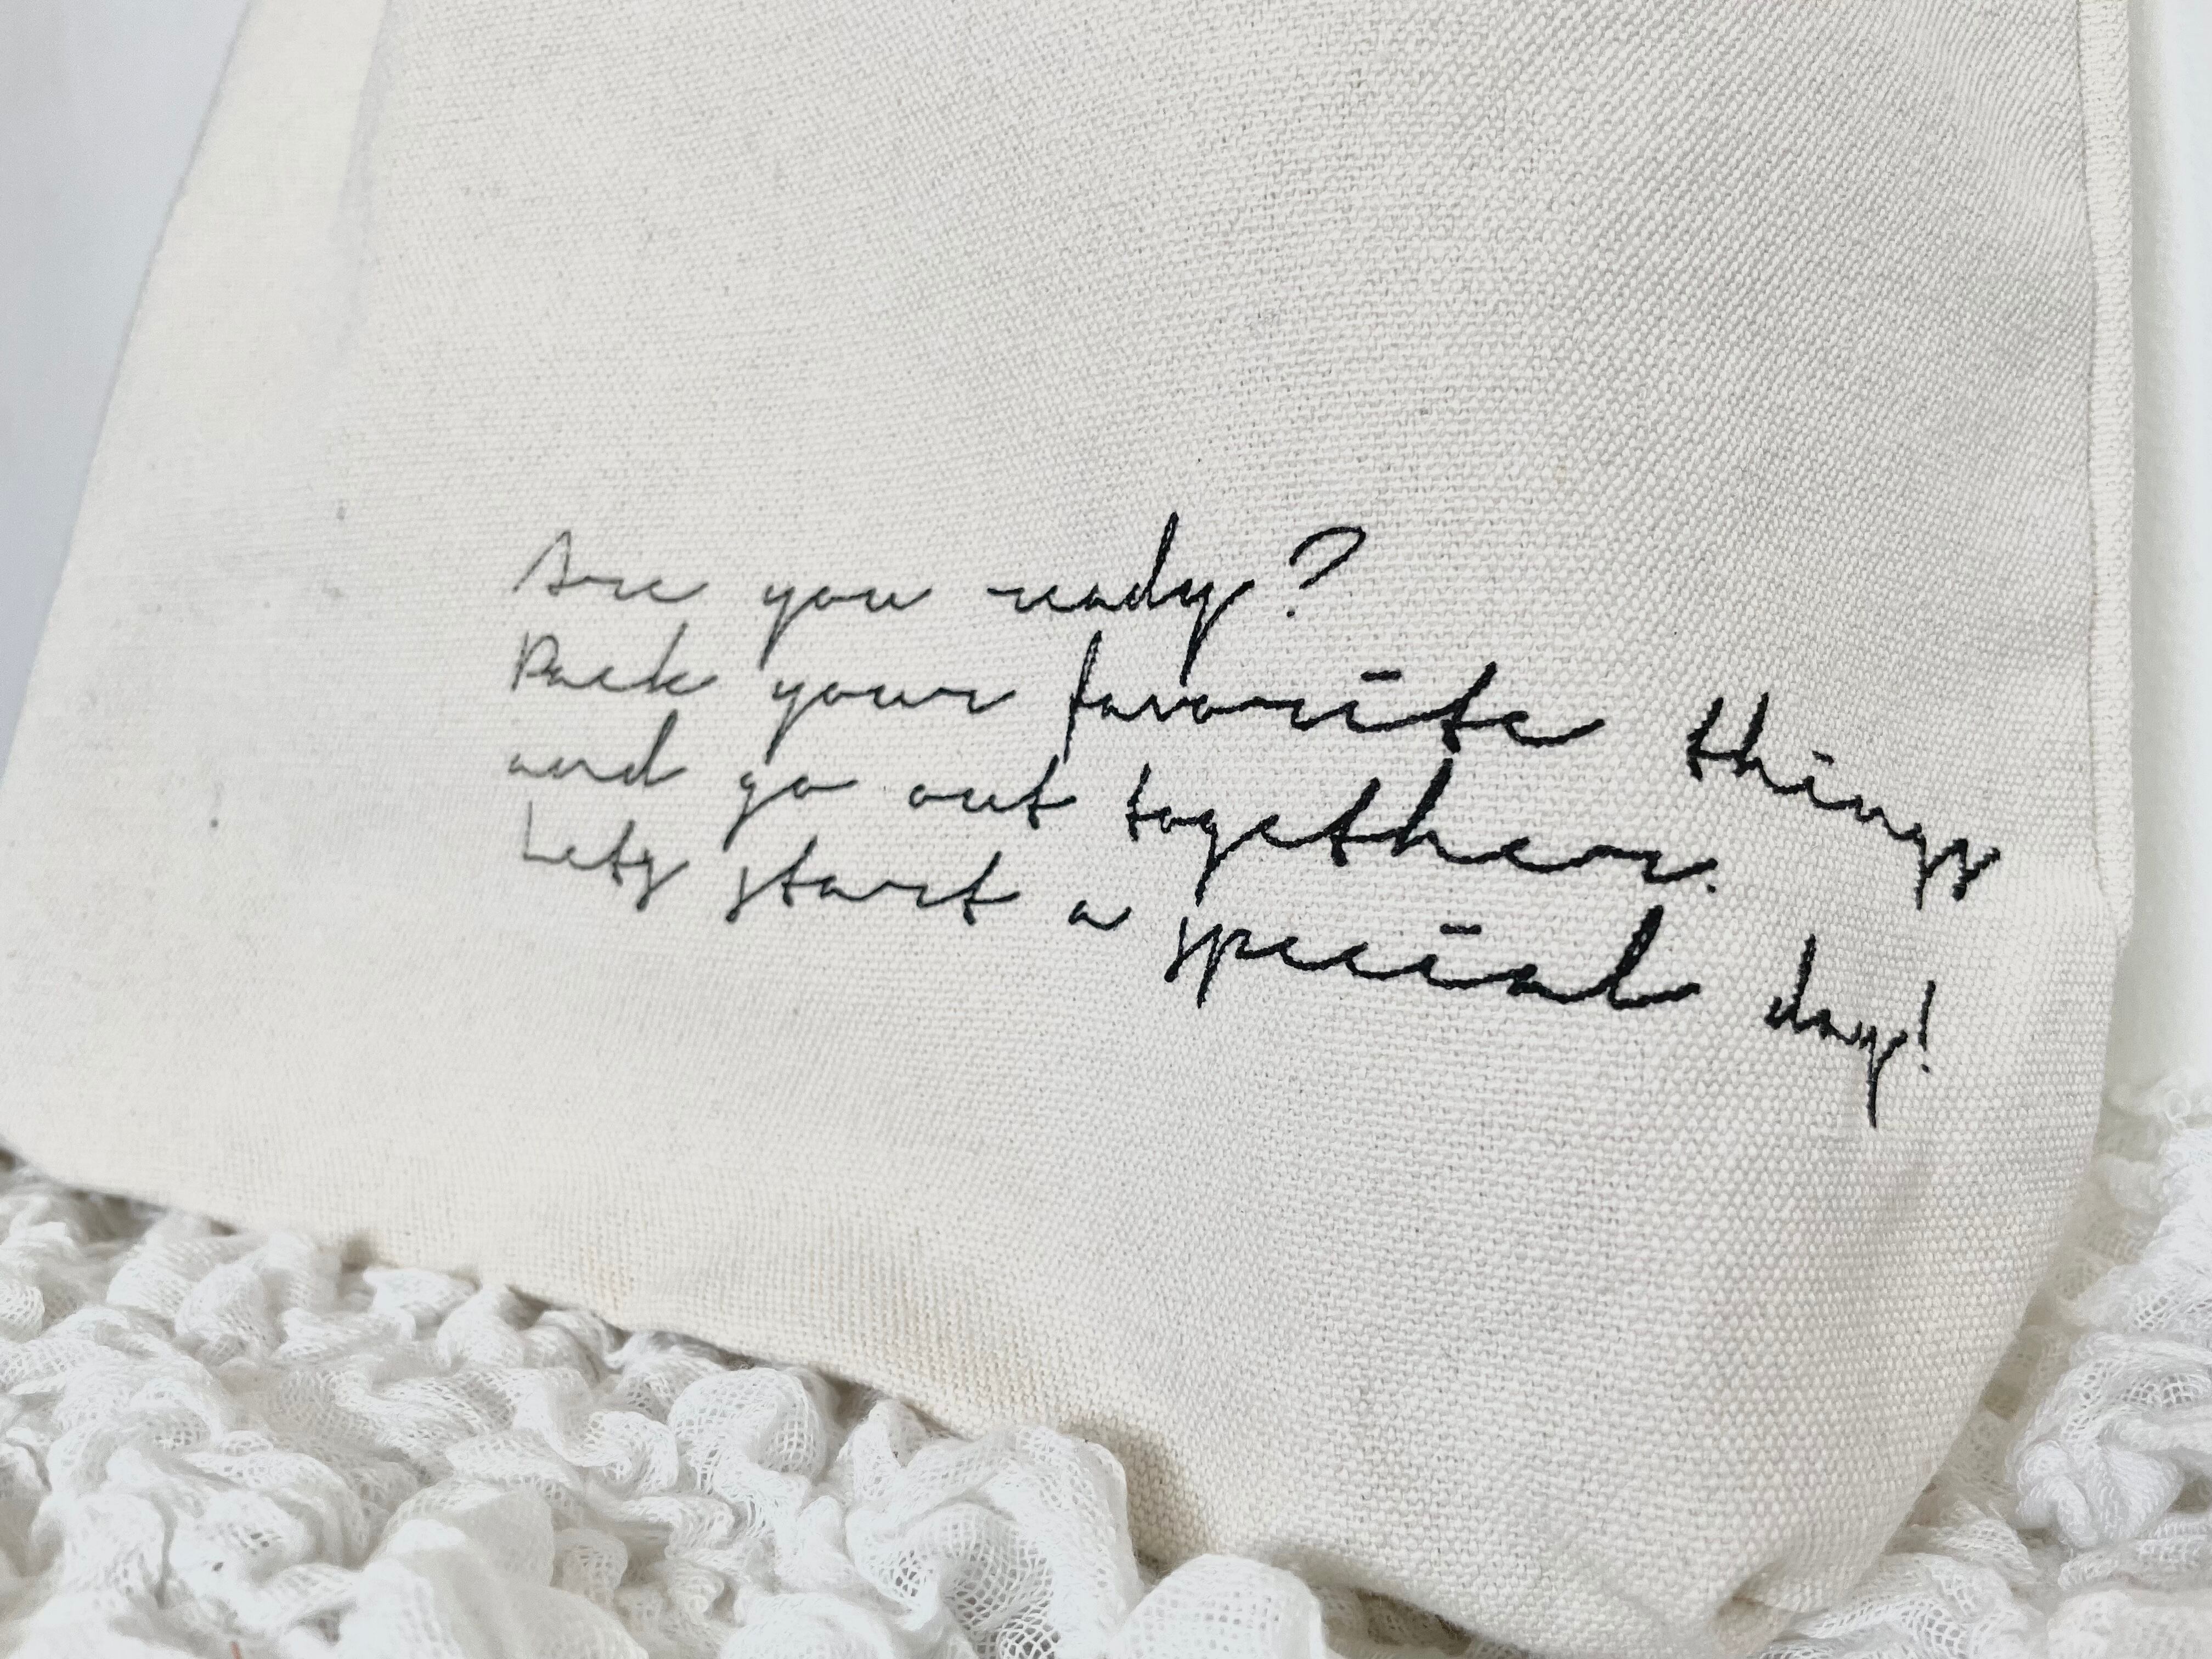 Are you ready?
Pack your favorite things
and go out together.
Lets start a special day!